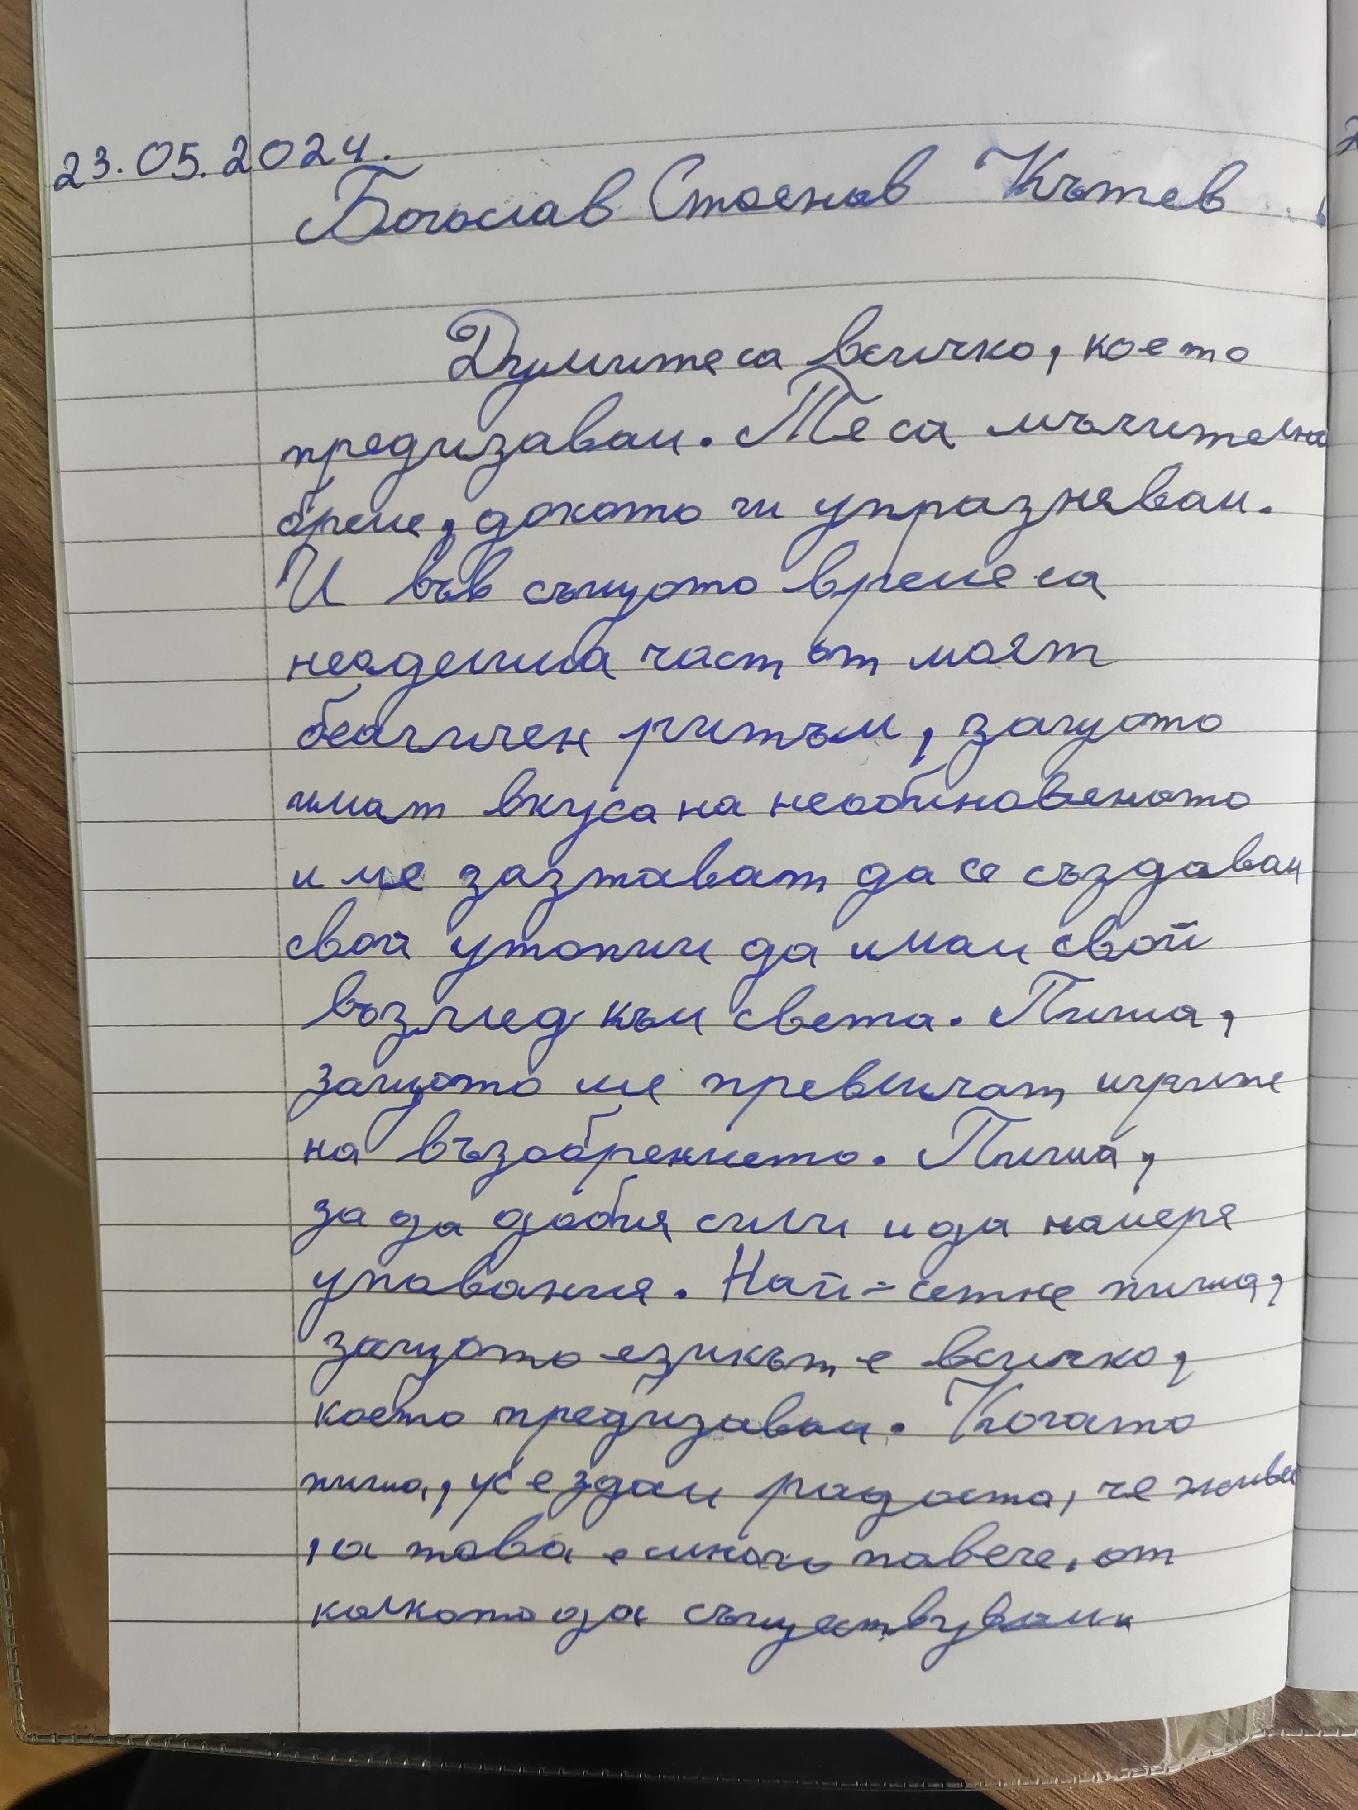 23.05.2024.
Богослав Стоенов Кътев
Думите са всичко, което
предизвам. Те са мъчително
бреме, докото ги упразнявам.
И във същото време са
неоделима част от моят
безгличен ритъм, защото
имат вкуса на необикновеното
и ме застават да се създавам
свои утопии да имам свой
възглед към света. Пиша,
защото ме превличат игрите
на въображението. Пиша,
за да добия сили и да намеря
упования. Най-сетне пиша,
защото езикът е всичко,
което предизвам. Когато
пиша, усездам радоста, че живея
, а това е много повече, от
колкото да съществувам.